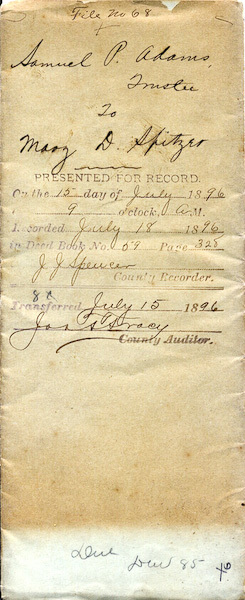 File No 68
Samuel P. Adams,
Trustee
To
Mary D. Spitzer
PRESENTED FOR RECORD.
On the 15 day of July 1896
9 o'clock, A.M.
Recorded July 18 1896
in Deed Book No. 59 Page 328
J J Spencer
County Recorder.
80
Transferred July 15 1896
Jas Tracy
County Auditor.
85